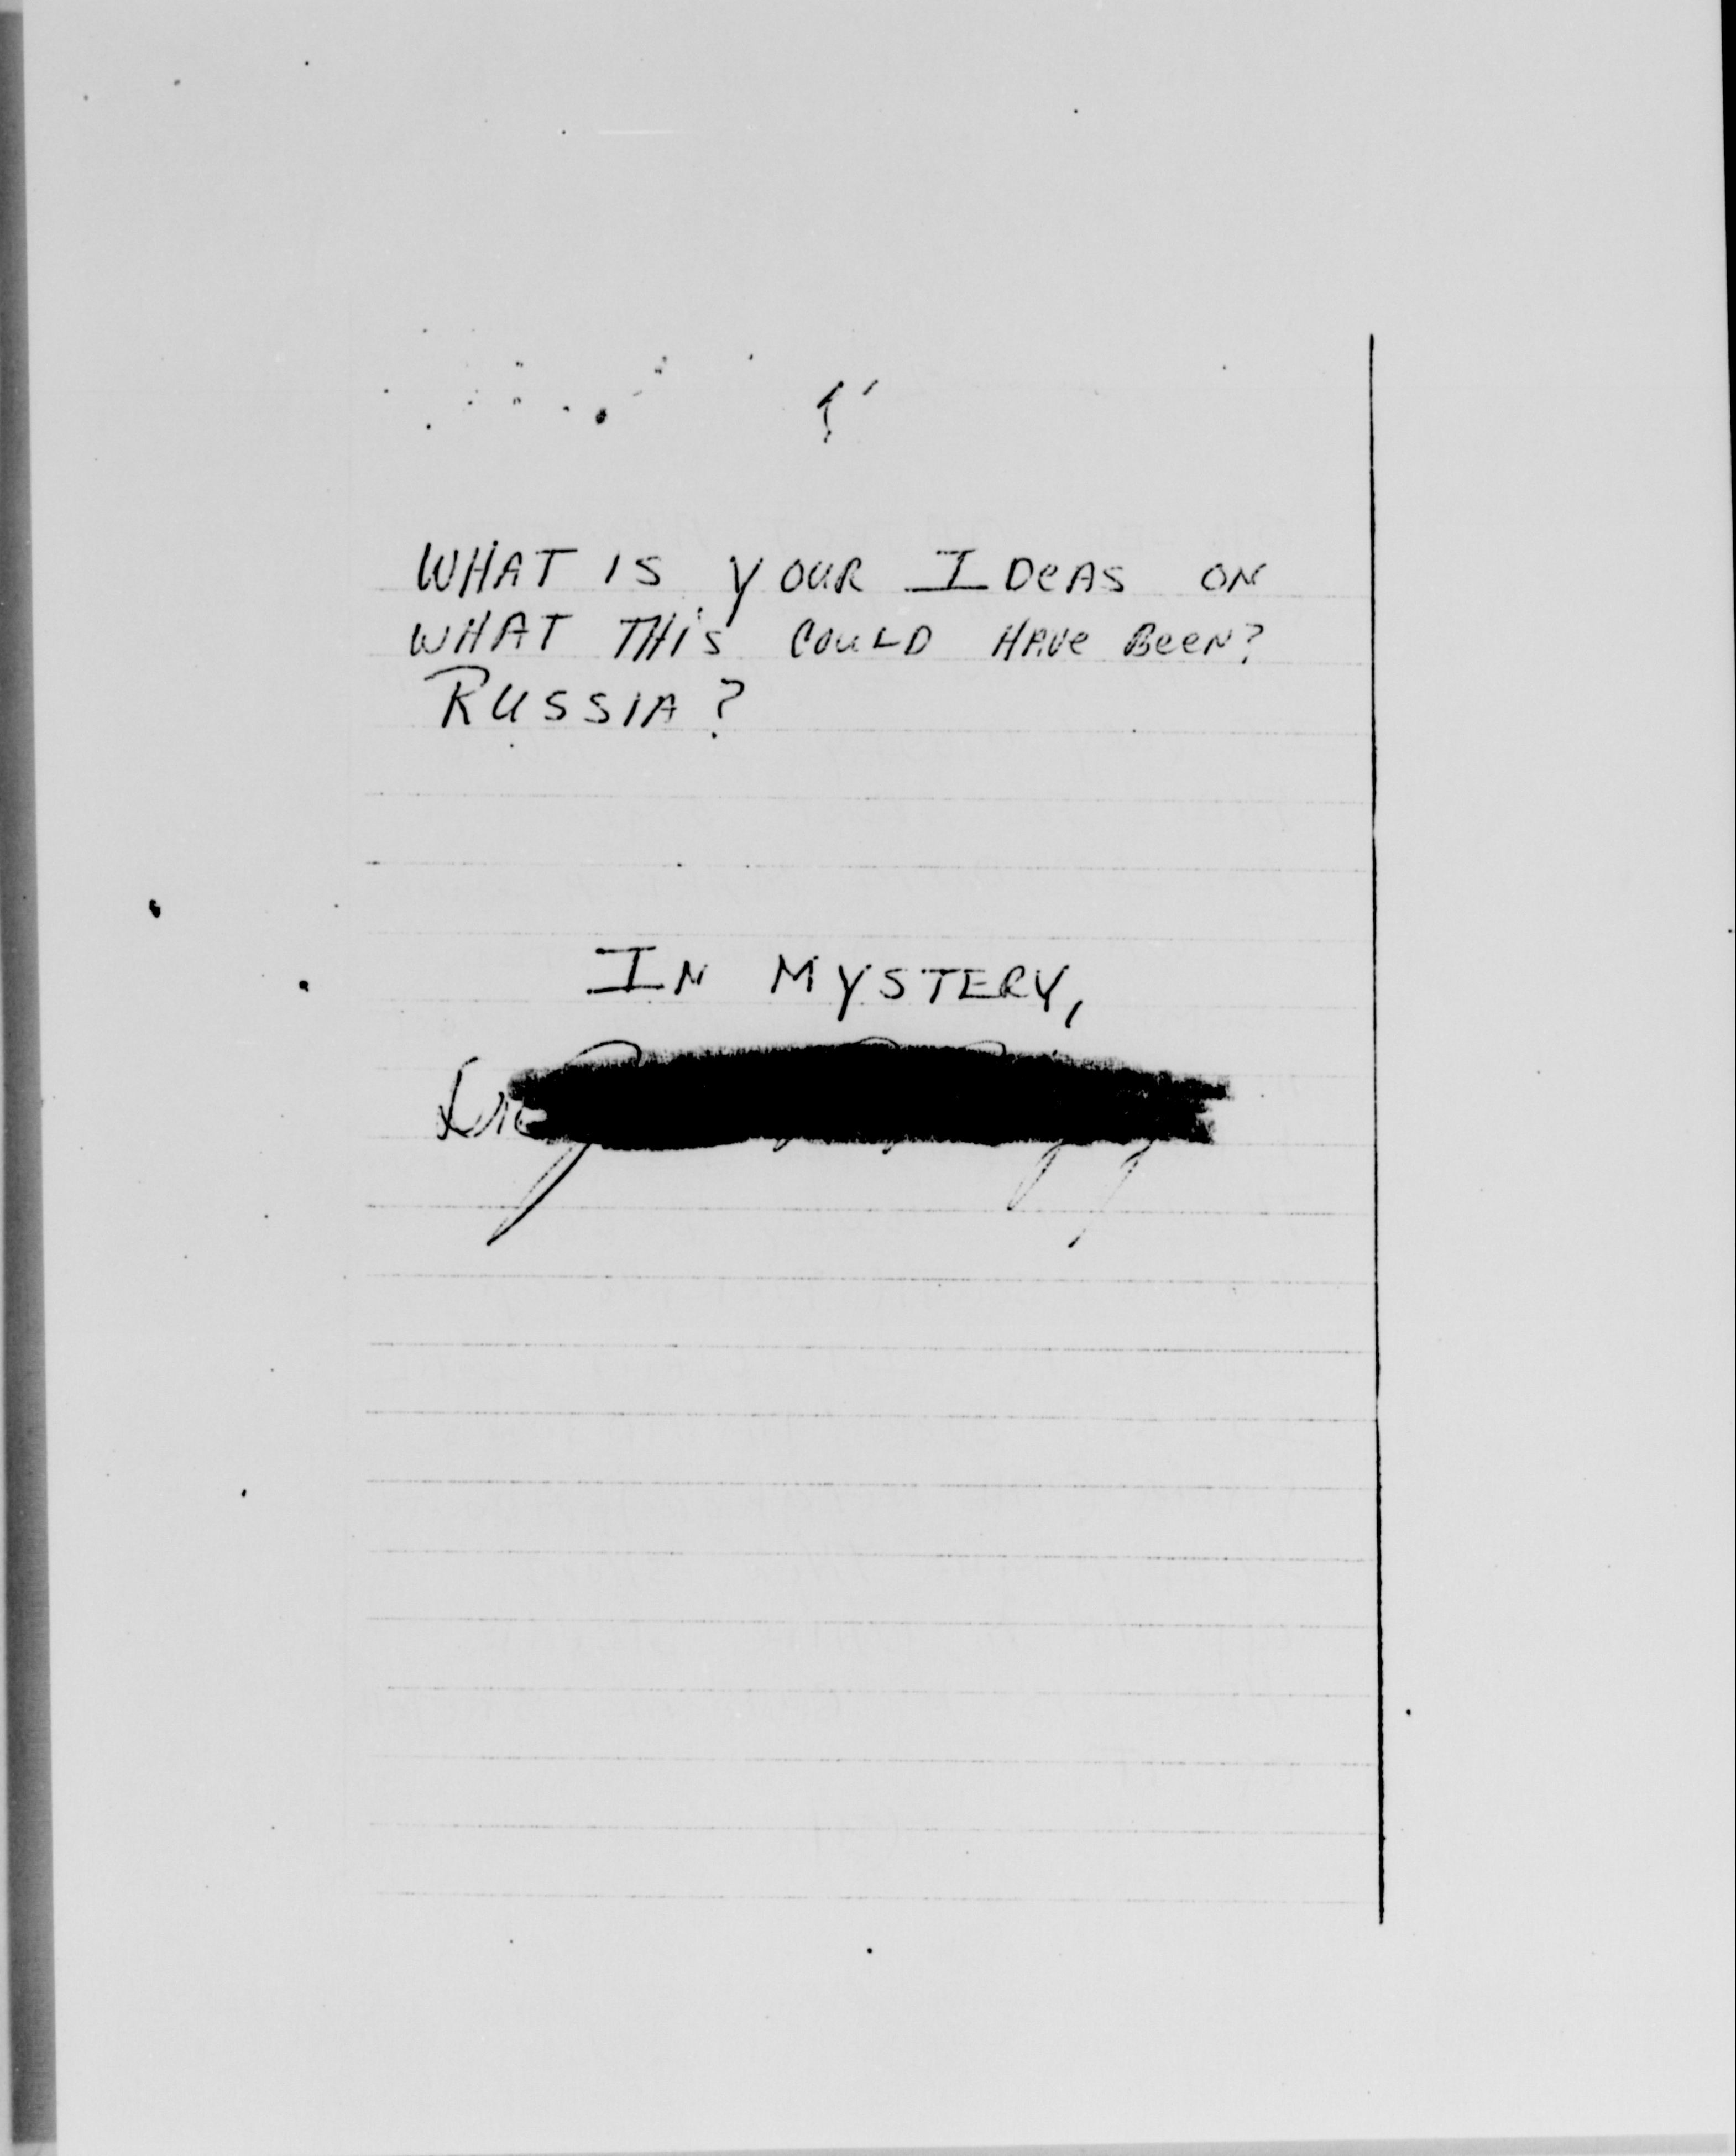 WHAT IS YOUR IDeAS ON
WHAT THiS COULD HAVe BeeN?
RUSSIA?
IN MYSTERY,